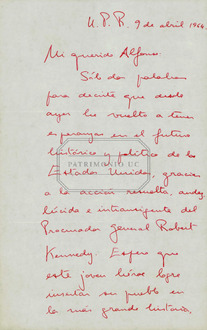 U. P. R. 9 de abril 1964
Mi querido Alfonso:
Sólo dos palabras
para decirte que desde
ayer he vuelto a tener
esperanzas en el futuro
histórico y político de los
PATRIMONIO UC
Estados Unidos, gracias
a la acción resuelta, audaz,
lúcida e intransigente del
Procurador General Robert
Kennedy. Espero que
este joven héroe logre
insertar su pueblo en
la más grande historia,